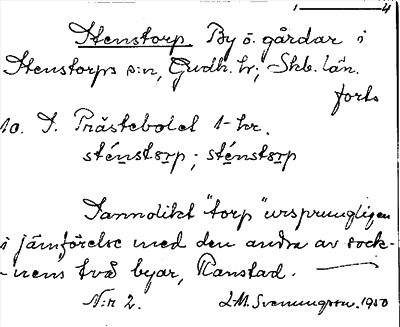 1 — 4
Stenstorp. By o. gårdar i
Stenstorps s:n, Gudh. hr; Skb. län.
forts
10. S. Prästebolet 1-hr.
sténstɷrp; sténstɷrp
Sannolikt "torp" ursprungligen
i jämförelse med den andra av sock-
-nens två byar, Ranstad. —
N:r 2. J. M. Svenungsson. 1950